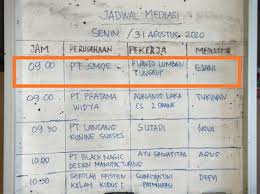 JADWAL MEDIASI
SENIN / 31 AGUSTUS 2020
JAM PERUSAHAAN PEKERJA MEDIATOR
09.00 PT SMOE PLANTO LUMBAN TUNGKUP EJANI
09.00 PT PRATAMA WIDYA ADRIANUS LAKA CS 2 ORANG TUKIMAN
09.30 PT LANGANG KUNING SUKSES SUTADI NOVA
10.00 PT BLACK MAGIC DESIGN MANUFACTURING AYU
10.30 SEKOLAH KRISTEN KALAM KUDUS